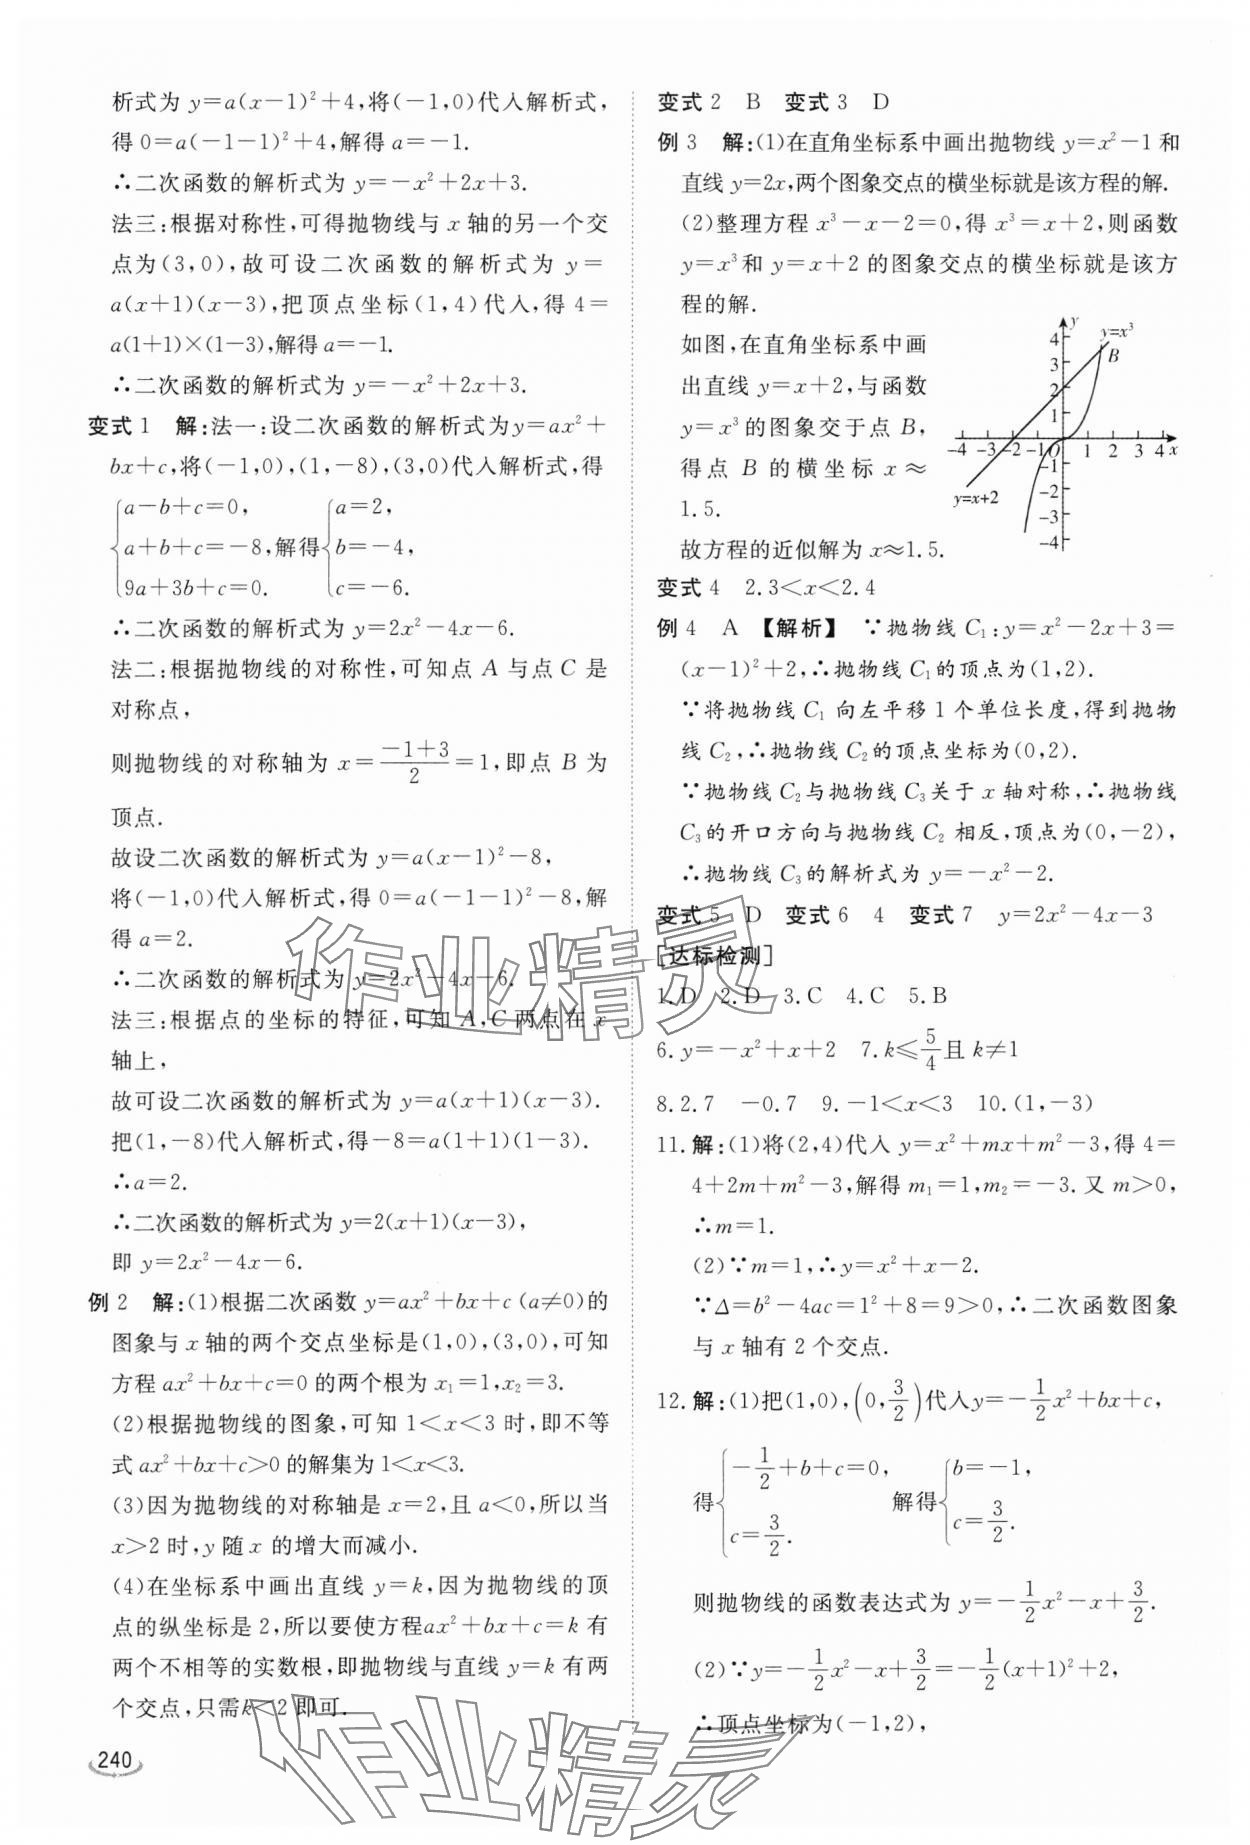 析式为 y=a(x-1)²+4,将(-1,0)代入解析式,
得 0=a(-1-1)²+4,解得 a=-1.
∴二次函数的解析式为 y=-x²+2x+3.
法三:根据对称性,可得抛物线与 x 轴的另一个交
点为(3,0),故可设二次函数的解析式为 y=
a(x+1)(x-3),把顶点坐标(1,4)代入,得 4=
a(1+1)×(1-3),解得 a=-1.
∴二次函数的解析式为 y=-x²+2x+3.
变式 1 解:法一:设二次函数的解析式为y=ax²+
bx+c,将(-1,0),(1,-8),(3,0)代入解析式,得
{a-b+c=0, a+b+c=-8, 9a+3b+c=0. 解得{a=2, b=-4, c=-6.
∴二次函数的解析式为 y=2x²-4x-6.
法二:根据抛物线的对称性,可知点 A 与点 C 是
对称点,
则抛物线的对称轴为 x=(-1+3)/2=1,即点 B 为
顶点.
故设二次函数的解析式为 y=a(x-1)²-8,
将(-1,0)代入解析式,得 0=a(-1-1)²-8,解
得 a=2.
∴二次函数的解析式为 y=2x²-4x-6.
法三:根据点的坐标的特征,可知 A,C 两点在 x
轴上,
故可设二次函数的解析式为 y=a(x+1)(x-3).
把(1,-8)代入解析式,得-8=a(1+1)(1-3).
∴a=2.
∴二次函数的解析式为 y=2(x+1)(x-3),
即 y=2x²-4x-6.
例 2 解:(1)根据二次函数 y=ax²+bx+c (a≠0)的
图象与 x 轴的两个交点坐标是(1,0),(3,0),可知
方程 ax²+bx+c=0 的两个根为 x₁=1,x₂=3.
(2)根据抛物线的图象,可知 1<x<3 时,即不等
式 ax²+bx+c>0 的解集为 1<x<3.
(3)因为抛物线的对称轴是 x=2,且 a<0,所以当
x>2 时,y 随 x 的增大而减小.
(4)在坐标系中画出直线 y=k,因为抛物线的顶
点的纵坐标是 2,所以要使方程ax²+bx+c=k 有
两个不相等的实数根,即抛物线与直线 y=k 有两
个交点,只需k<2 即可.
240
变式 2 B 变式 3 D
例 3 解:(1)在直角坐标系中画出抛物线 y=x²-1 和
直线 y=2x,两个图象交点的横坐标就是该方程的解.
(2)整理方程 x³-x-2=0,得 x³=x+2,则函数
y=x³和 y=x+2 的图象交点的横坐标就是该方
程的解.
如图,在直角坐标系中画
出直线 y=x+2,与函数
y=x³的图象交于点 B,
得点 B 的横坐标 x≈
1.5.
故方程的近似解为 x≈1.5.
y
y=x³
B
4
3
2
1
-4 -3 -2 -1 O 1 2 3 4 x
-1
-2
-3
-4
y=x+2
变式 4 2.3<x<2.4
例 4 A 【解析】 ∵抛物线 C₁:y=x²-2x+3=
(x-1)²+2,∴抛物线 C₁的顶点为(1,2).
∵将抛物线 C₁ 向左平移 1 个单位长度,得到抛物
线 C₂,∴抛物线 C₂的顶点坐标为(0,2).
∵抛物线 C₂与抛物线 C₃关于 x 轴对称,∴抛物线
C₃的开口方向与抛物线 C₂ 相反,顶点为(0,-2),
∴抛物线 C₃的解析式为 y=-x²-2.
变式 5 D 变式 6 4 变式 7 y=2x²-4x-3
[达标检测]
1.D 2.D 3.C 4.C 5.B
6.y=-x²+x+2 7.k≤5/4且 k≠1
8.2.7 -0.7 9.-1<x<3 10.(1,-3)
11.解:(1)将(2,4)代入 y=x²+mx+m²-3,得 4=
4+2m+m²-3,解得 m₁=1,m₂=-3.又 m>0,
∴m=1.
(2)∵m=1,∴y=x²+x-2.
∵Δ=b²-4ac=1²+8=9>0,∴二次函数图象
与 x 轴有 2 个交点.
12.解:(1)把(1,0),(0,3/2)代入y=-1/2x²+bx+c,
得{-1/2+b+c=0, c=3/2. 解得{b=-1, c=3/2.
则抛物线的函数表达式为 y=-1/2x²-x+3/2.
(2)∵y=-1/2x²-x+3/2=-1/2(x+1)²+2,
∴顶点坐标为(-1,2),
作业精灵
作业精灵